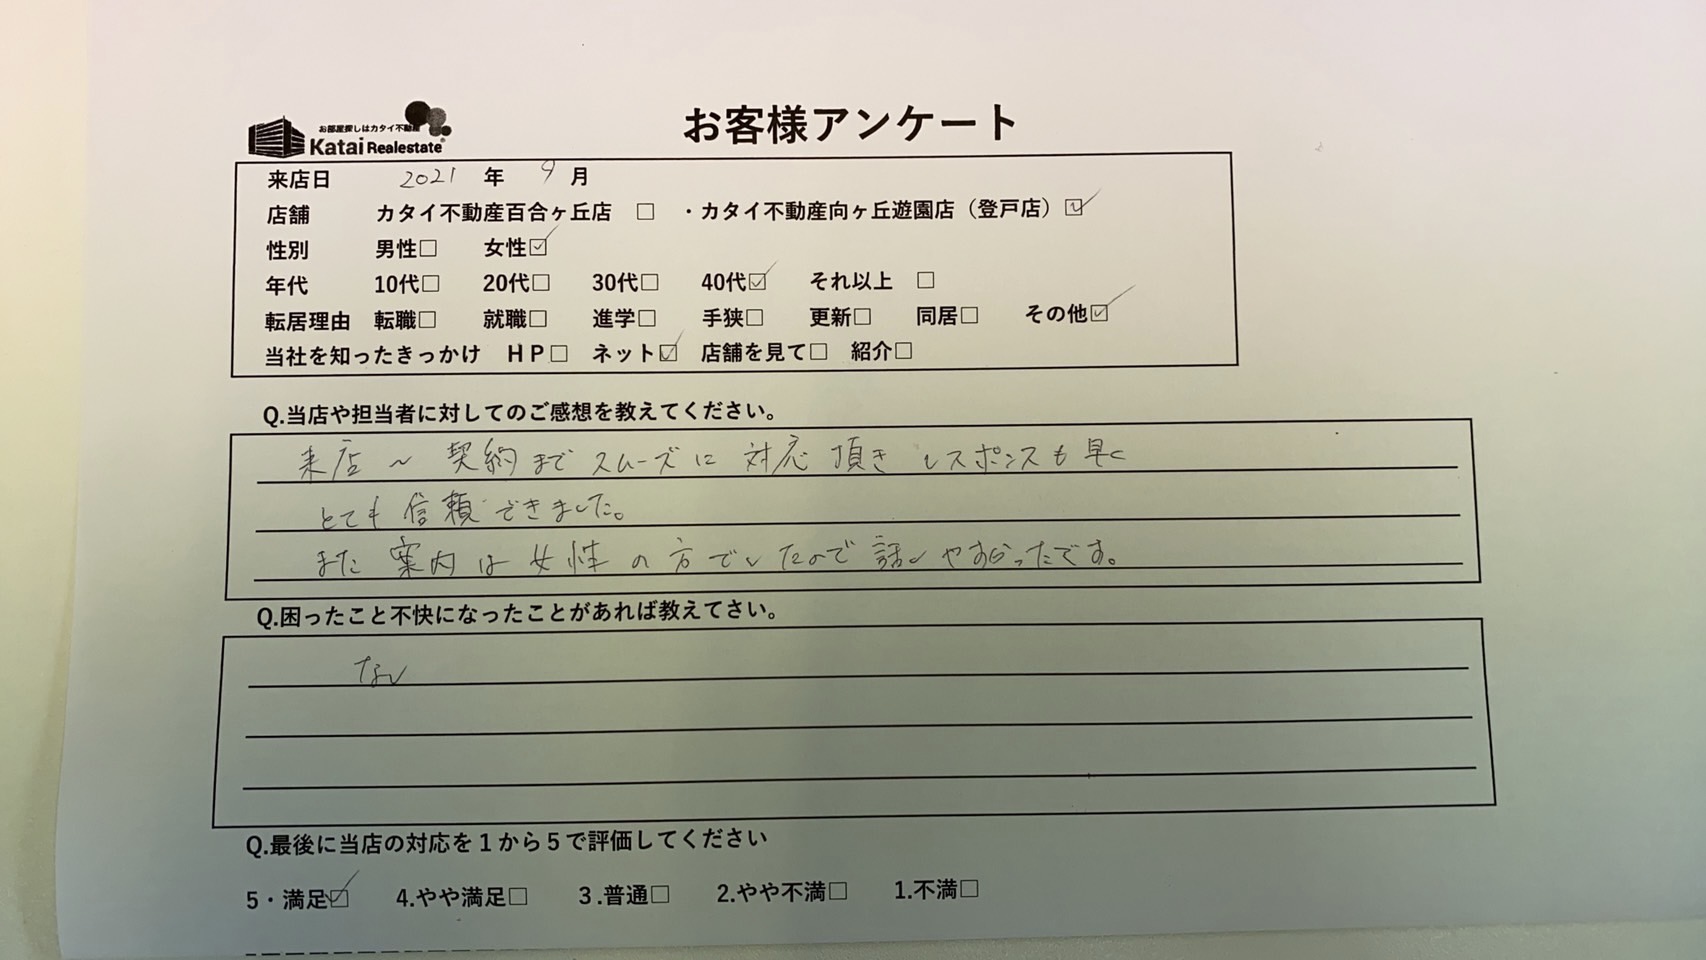 お部屋探しはカタイ不動産
Katai Realestate
お客様アンケート
来店日 2021 年 9 月
店舗 カタイ不動産百合ヶ丘店 □ ・カタイ不動産向ヶ丘遊園店（登戸店）☑
性別 男性□ 女性☑
年代 10代□ 20代□ 30代□ 40代☑ それ以上 □
転居理由 転職□ 就職□ 進学□ 手狭□ 更新□ 同居□ その他☑
当社を知ったきっかけ ＨＰ□ ネット☑ 店舗を見て□ 紹介□
Q.当店や担当者に対してのご感想を教えてください。
来店～契約までスムーズに対応頂きレスポンスも早く
とても信頼できました。
また案内は女性の方でしたので話しやすかったです。
Q.困ったこと不快になったことがあれば教えてさい。
なし
Q.最後に当店の対応を１から５で評価してください
5・満足☑ 4.やや満足□ ３.普通□ 2.やや不満□ 1.不満□